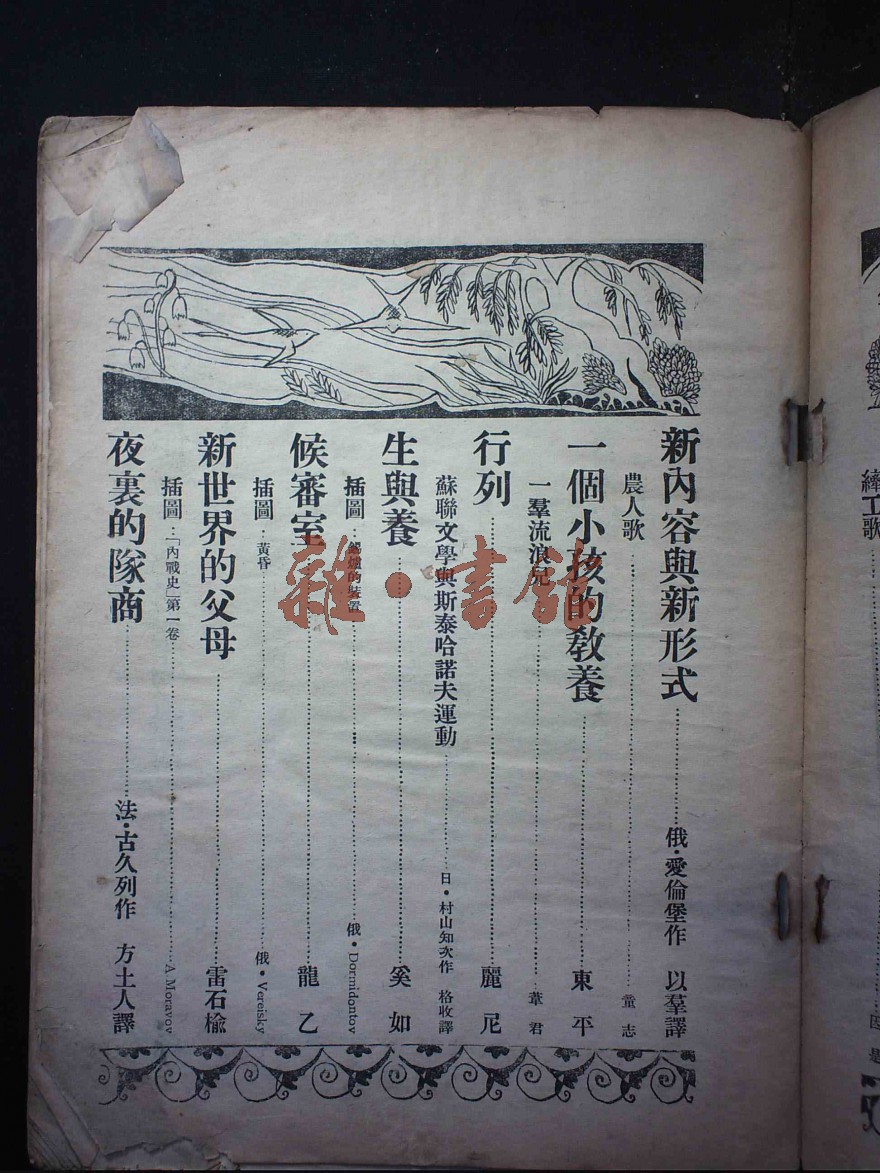 新內容與新形式……俄・愛倫堡作 以羣譯
農人歌……童志
一個小孩的教養……東平
一羣流浪兒……葦君
行列……麗尼
蘇聯文學與斯泰哈諾夫運動……日・村山知次作 格收譯
生與養……奚如
插圖：的裝置……俄・Dormidontov
候審室……龍乙
插圖：黃昏……俄・Vereisky
新世界的父母……雷石榆
插圖：「內戰史」第一卷……A Moravov
夜裏的隊商……法・古久列作 方土人譯
雜・書館
工歌